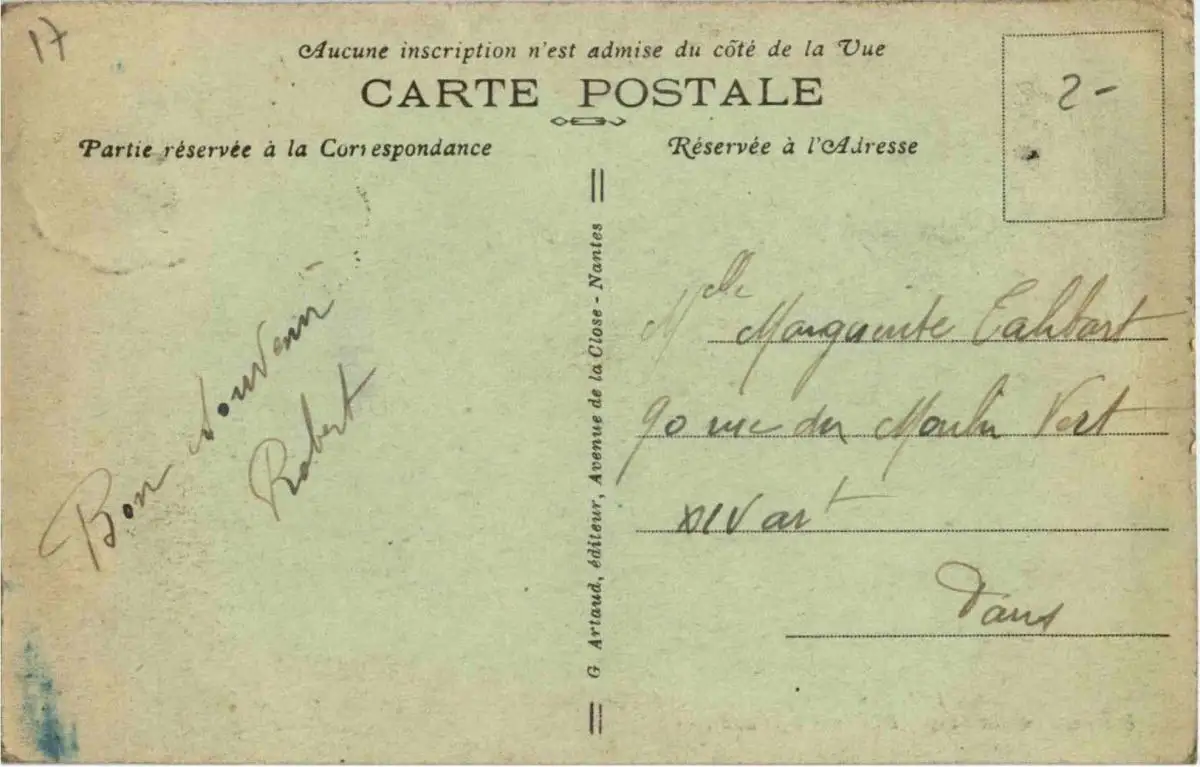 17
Aucune inscription n'est admise du côté de la Vue
CARTE POSTALE
Partie réservée à la Correspondance
Réservée à l'Adresse
2-
Bon souvenir
Robert
G Artaud, éditeur, Avenue de la Close - Nantes
Mlle Marguerite
90 rue du Moulin Vert
XIV art
Paris